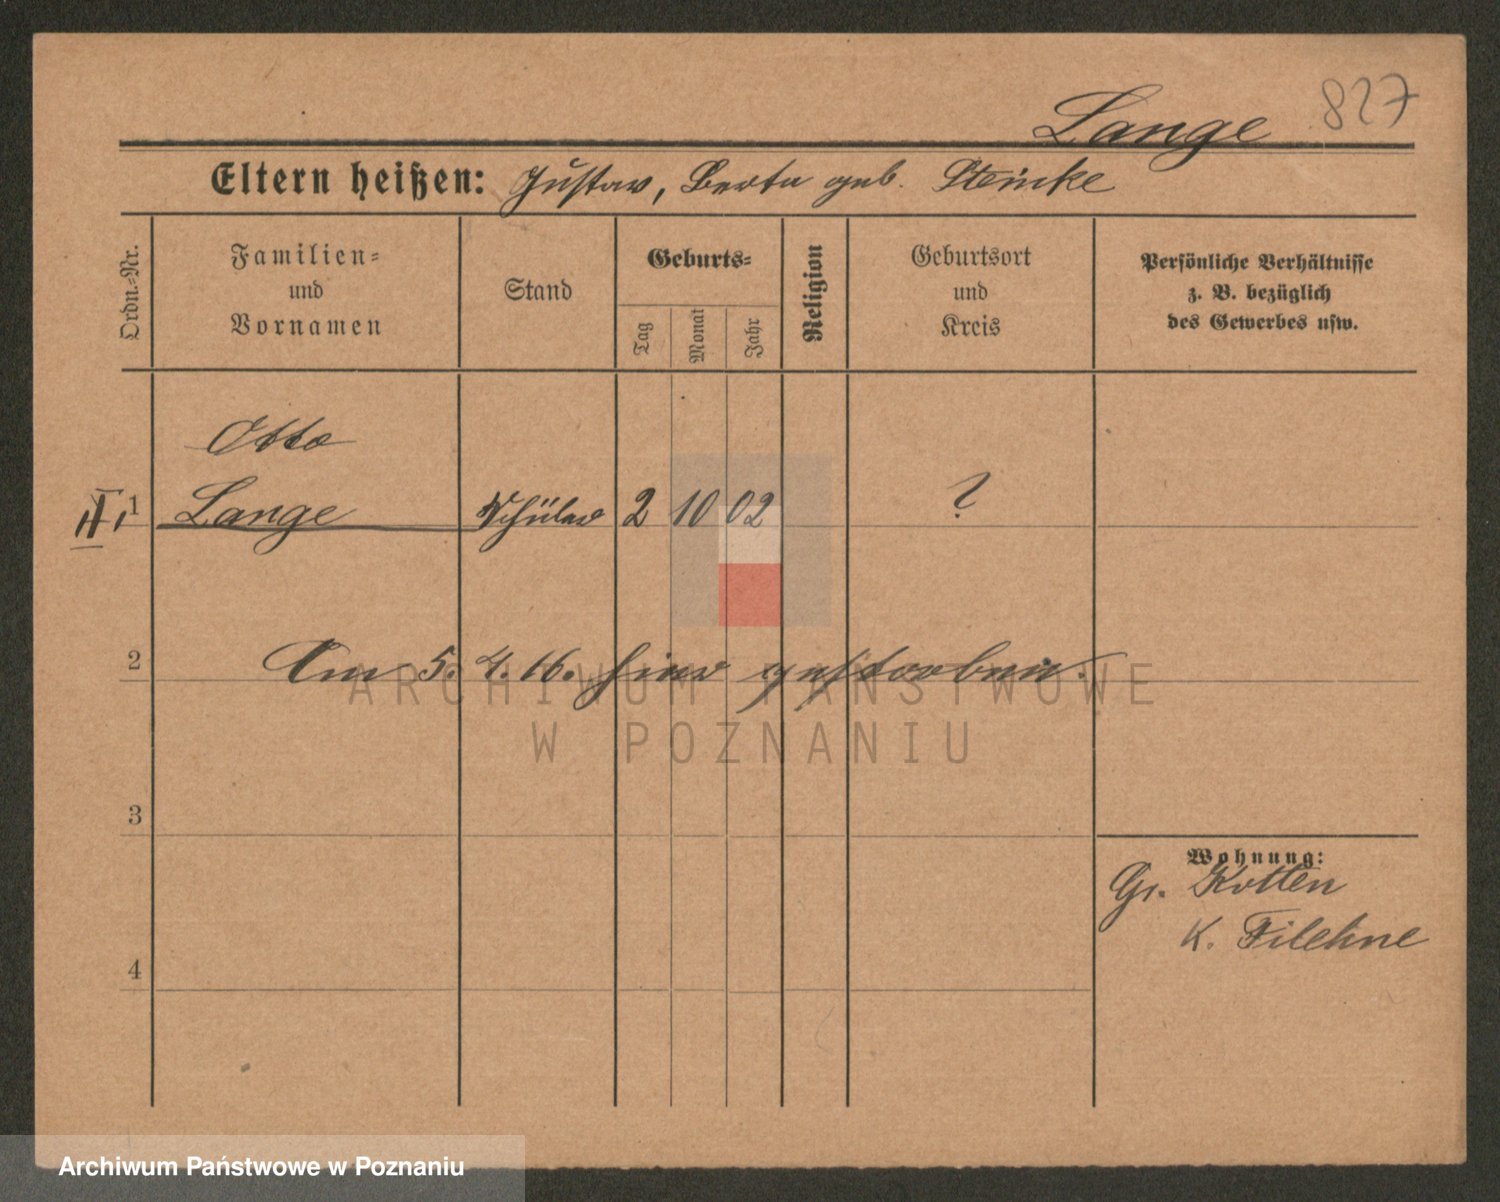 827
Lange
Eltern heißen: Gustav, Berta geb. Steinke
Ordn.=Nr.
Familien= und Vornamen
Stand
Geburts=
Tag
Monat
Jahr
Religion
Geburtsort und Kreis
Persönliche Verhältnisse
z. B. bezüglich
des Gewerbes usw.
Otto
1 Lange Schüler 2 10 02 ?
2 Am 5. 4. 16. hier gestorben.
ARCHIWUM PAŃSTWOWE
W POZNANIU
3
Wohnung:
Gr. Kotten
K. Filehne
4
Archiwum Państwowe w Poznaniu